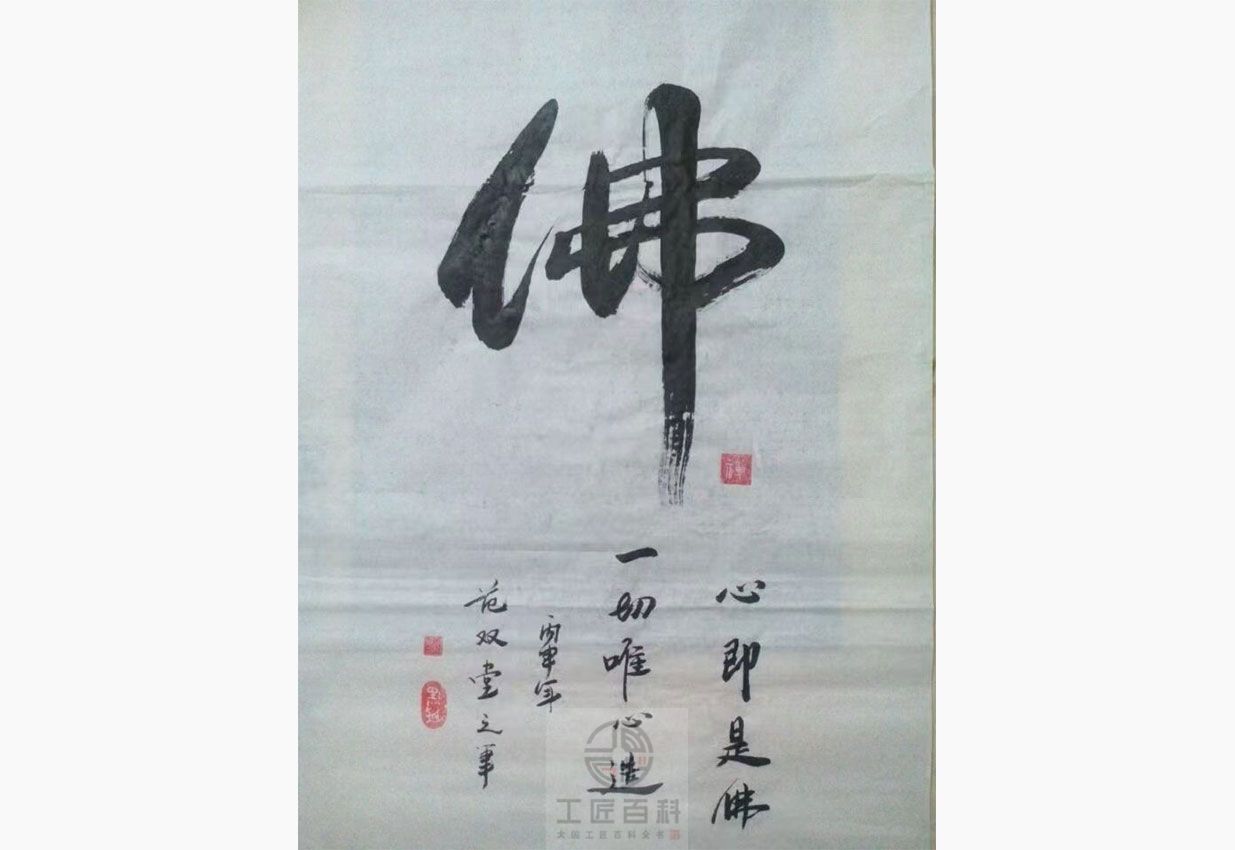 佛
心即是佛
一切唯心造
丙申年
范双堂之笔
工匠百科
大国工匠百科全书